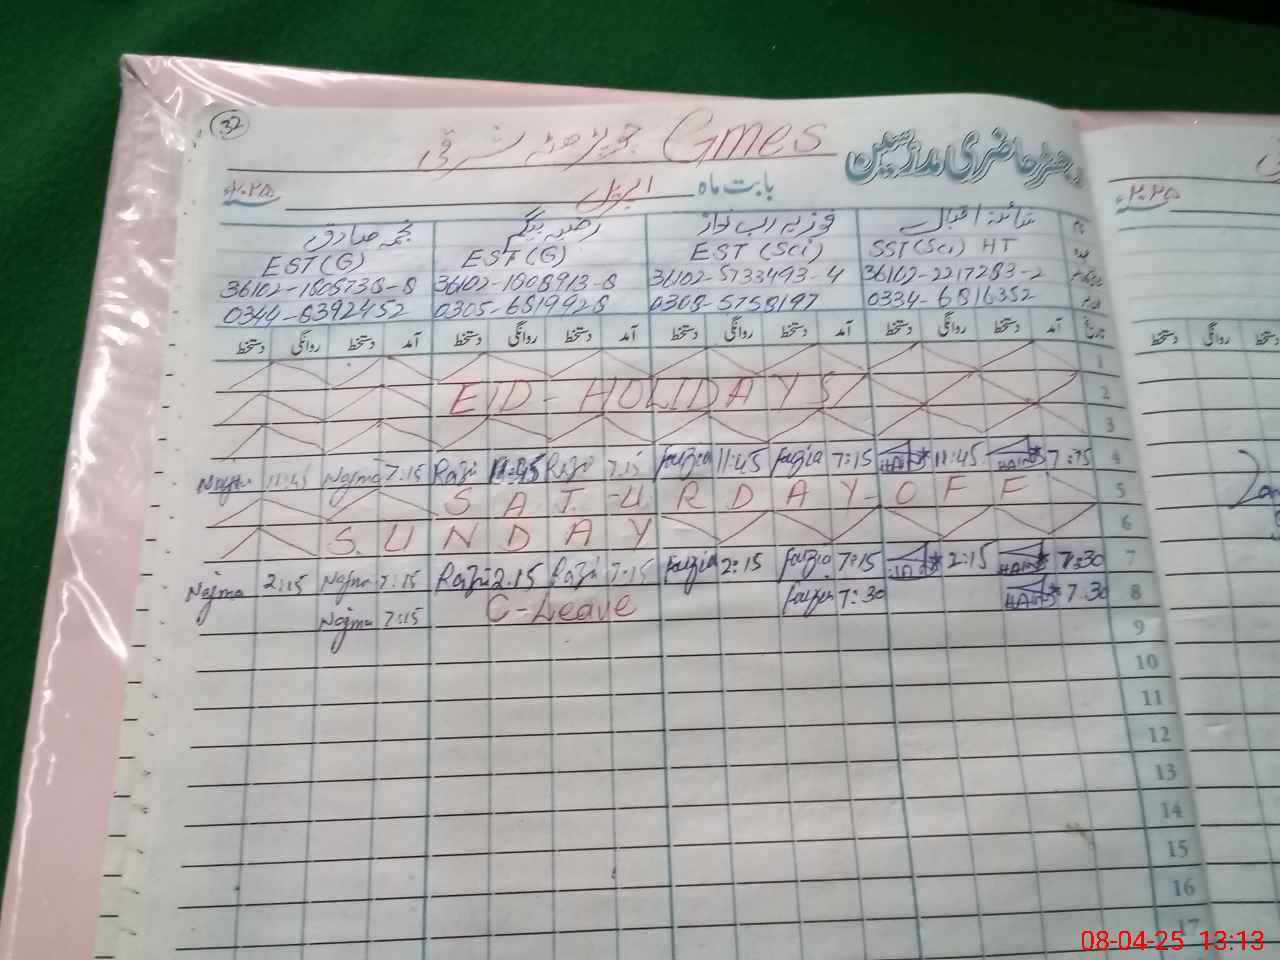 32
Gmes جوڑھہ شرقی
رجسٹر حاضری مدرسین
بابت ماہ اپریل ۲۰۲۵ء
شائستہ اقبال فوزیہ رب نواز رضیہ بیگم نجمہ صادق
SST(Sci) HT EST (Sci) EST (G) EST (G)
36102-2217283-2 36102-5733493-4 36102-1808913-8 36102-1808738-8
0334-6816352 0308-5758197 0305-6819928 0344-8392452
تاریخ آمد دستخط روانگی دستخط آمد دستخط روانگی دستخط آمد دستخط روانگی دستخط آمد دستخط روانگی دستخط
1
2 EID - HOLIDAYS
3
4 7:15 11:45 7:15 Fauzia 11:45 Fauzia 7:15 Razi 11:45 Razi 7:15 Najma 11:45 Najma
5 SATURDAY OFF
6 SUNDAY
7 7:30 2:15 7:15 Fauzia 2:15 Fauzia 7:15 Razi 2:15 Razi 7:15 Najma 2:15 Najma
8 7:30 7:30 Fauzia C-Leave 7:15 Najma
9
10
11
12
13
14
15
16
17
۲۰۲۵ء
دستخط روانگی
08-04-25 13:13